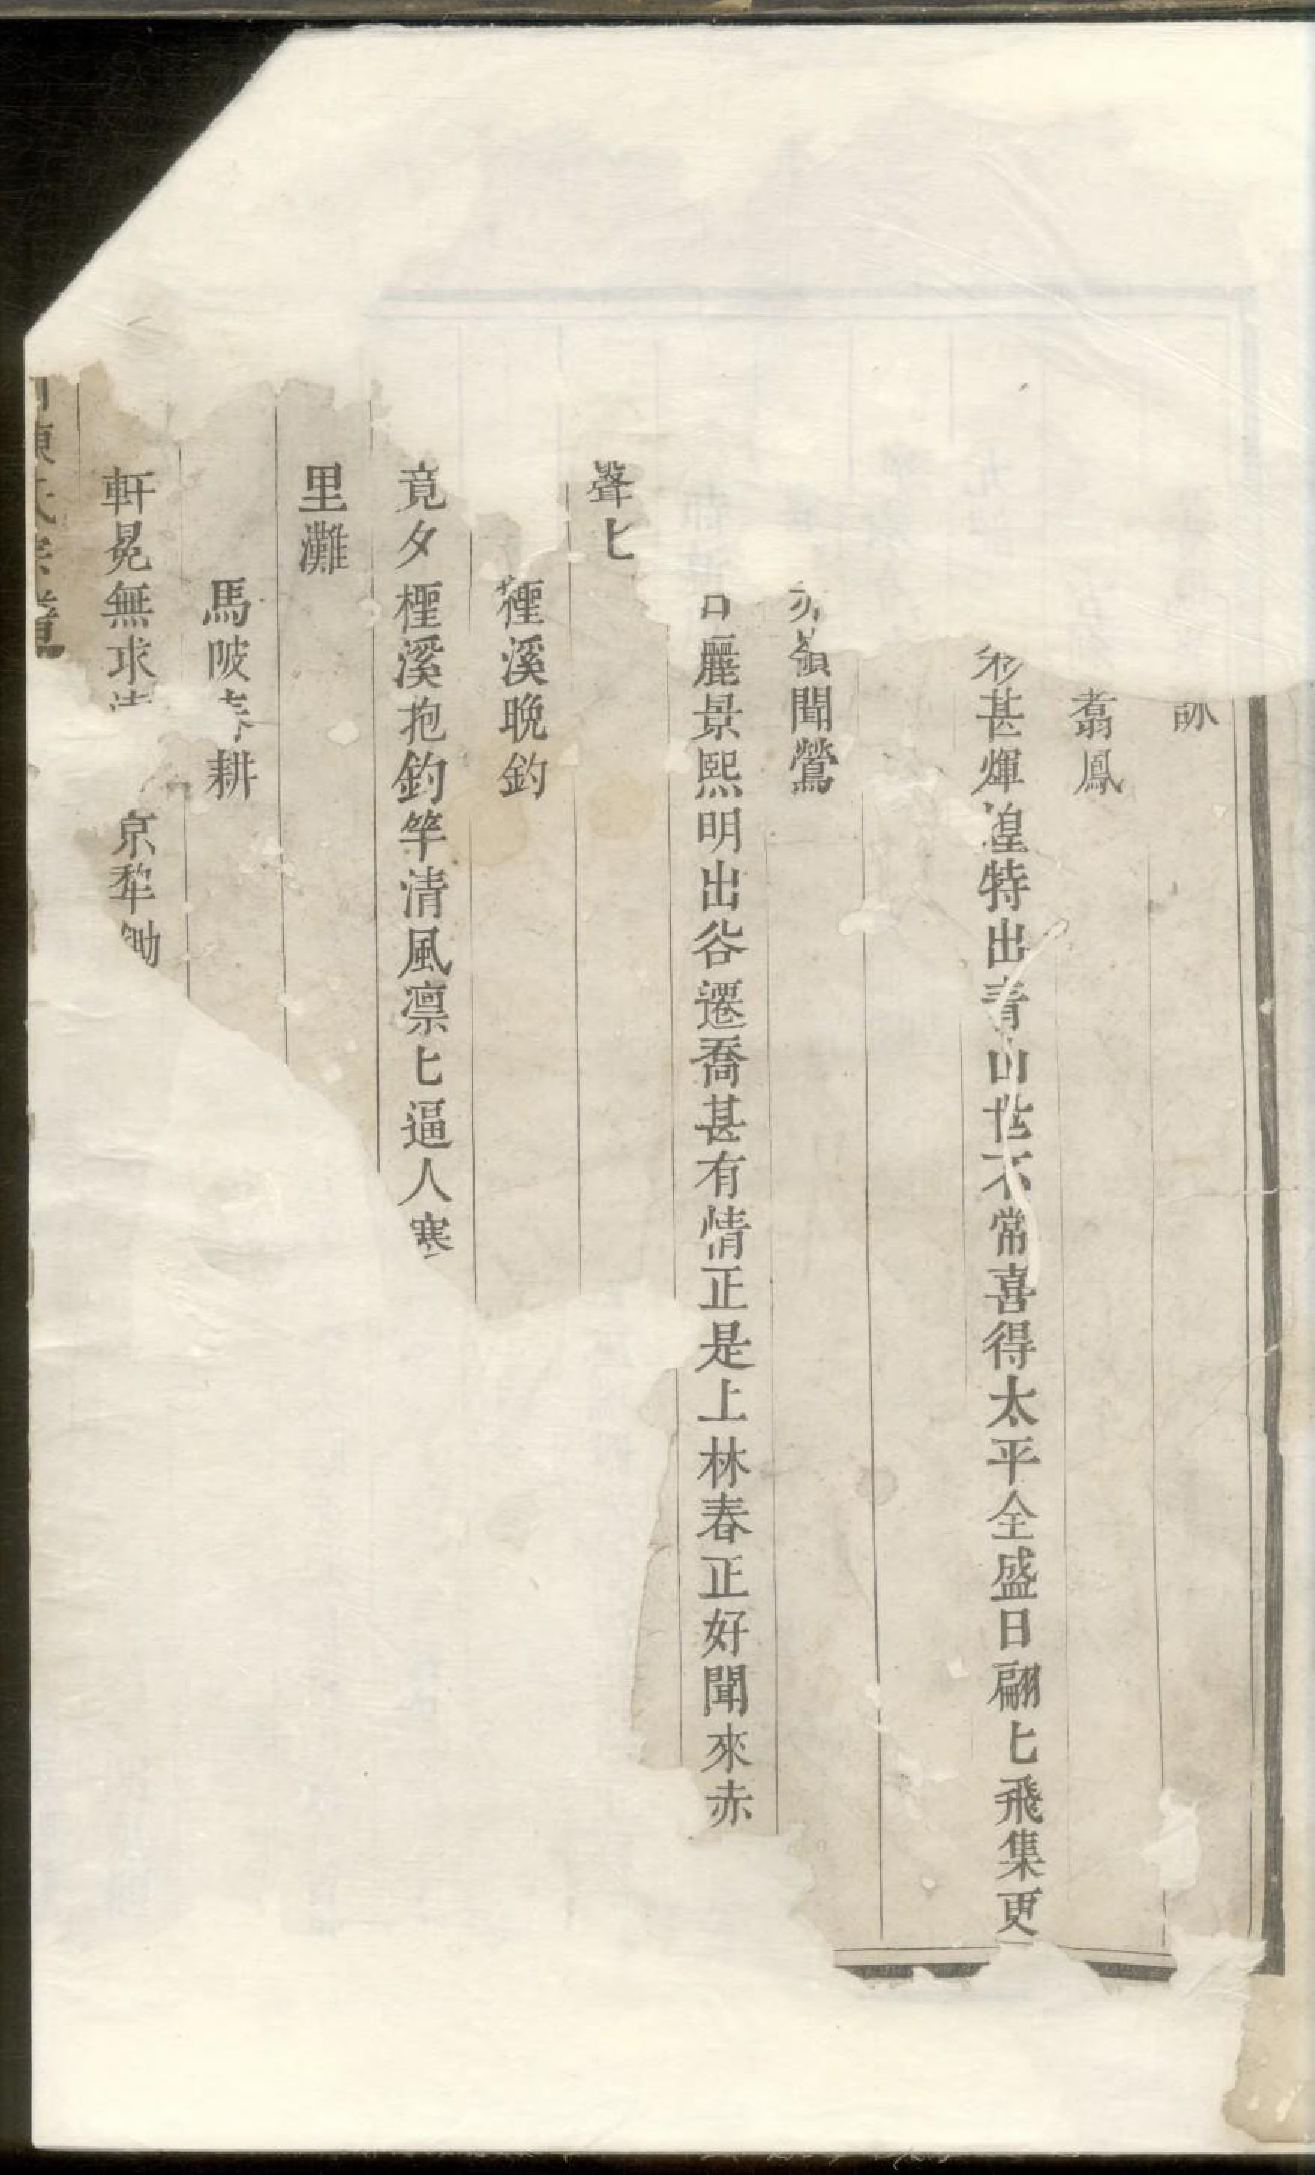 詠
翥鳳
彩甚煇煌特出青山世不常喜得太平全盛日翩匕飛集更
嶺聞鶯
麗景熙明出谷遷喬甚有情正是上林春正好聞來赤
聲匕
檉溪晩釣
竟夕檉溪抱釣竿清風凛匕逼人寒
里灘
馬陂春耕
軒冕無求 京犂鋤
陳氏宗譜